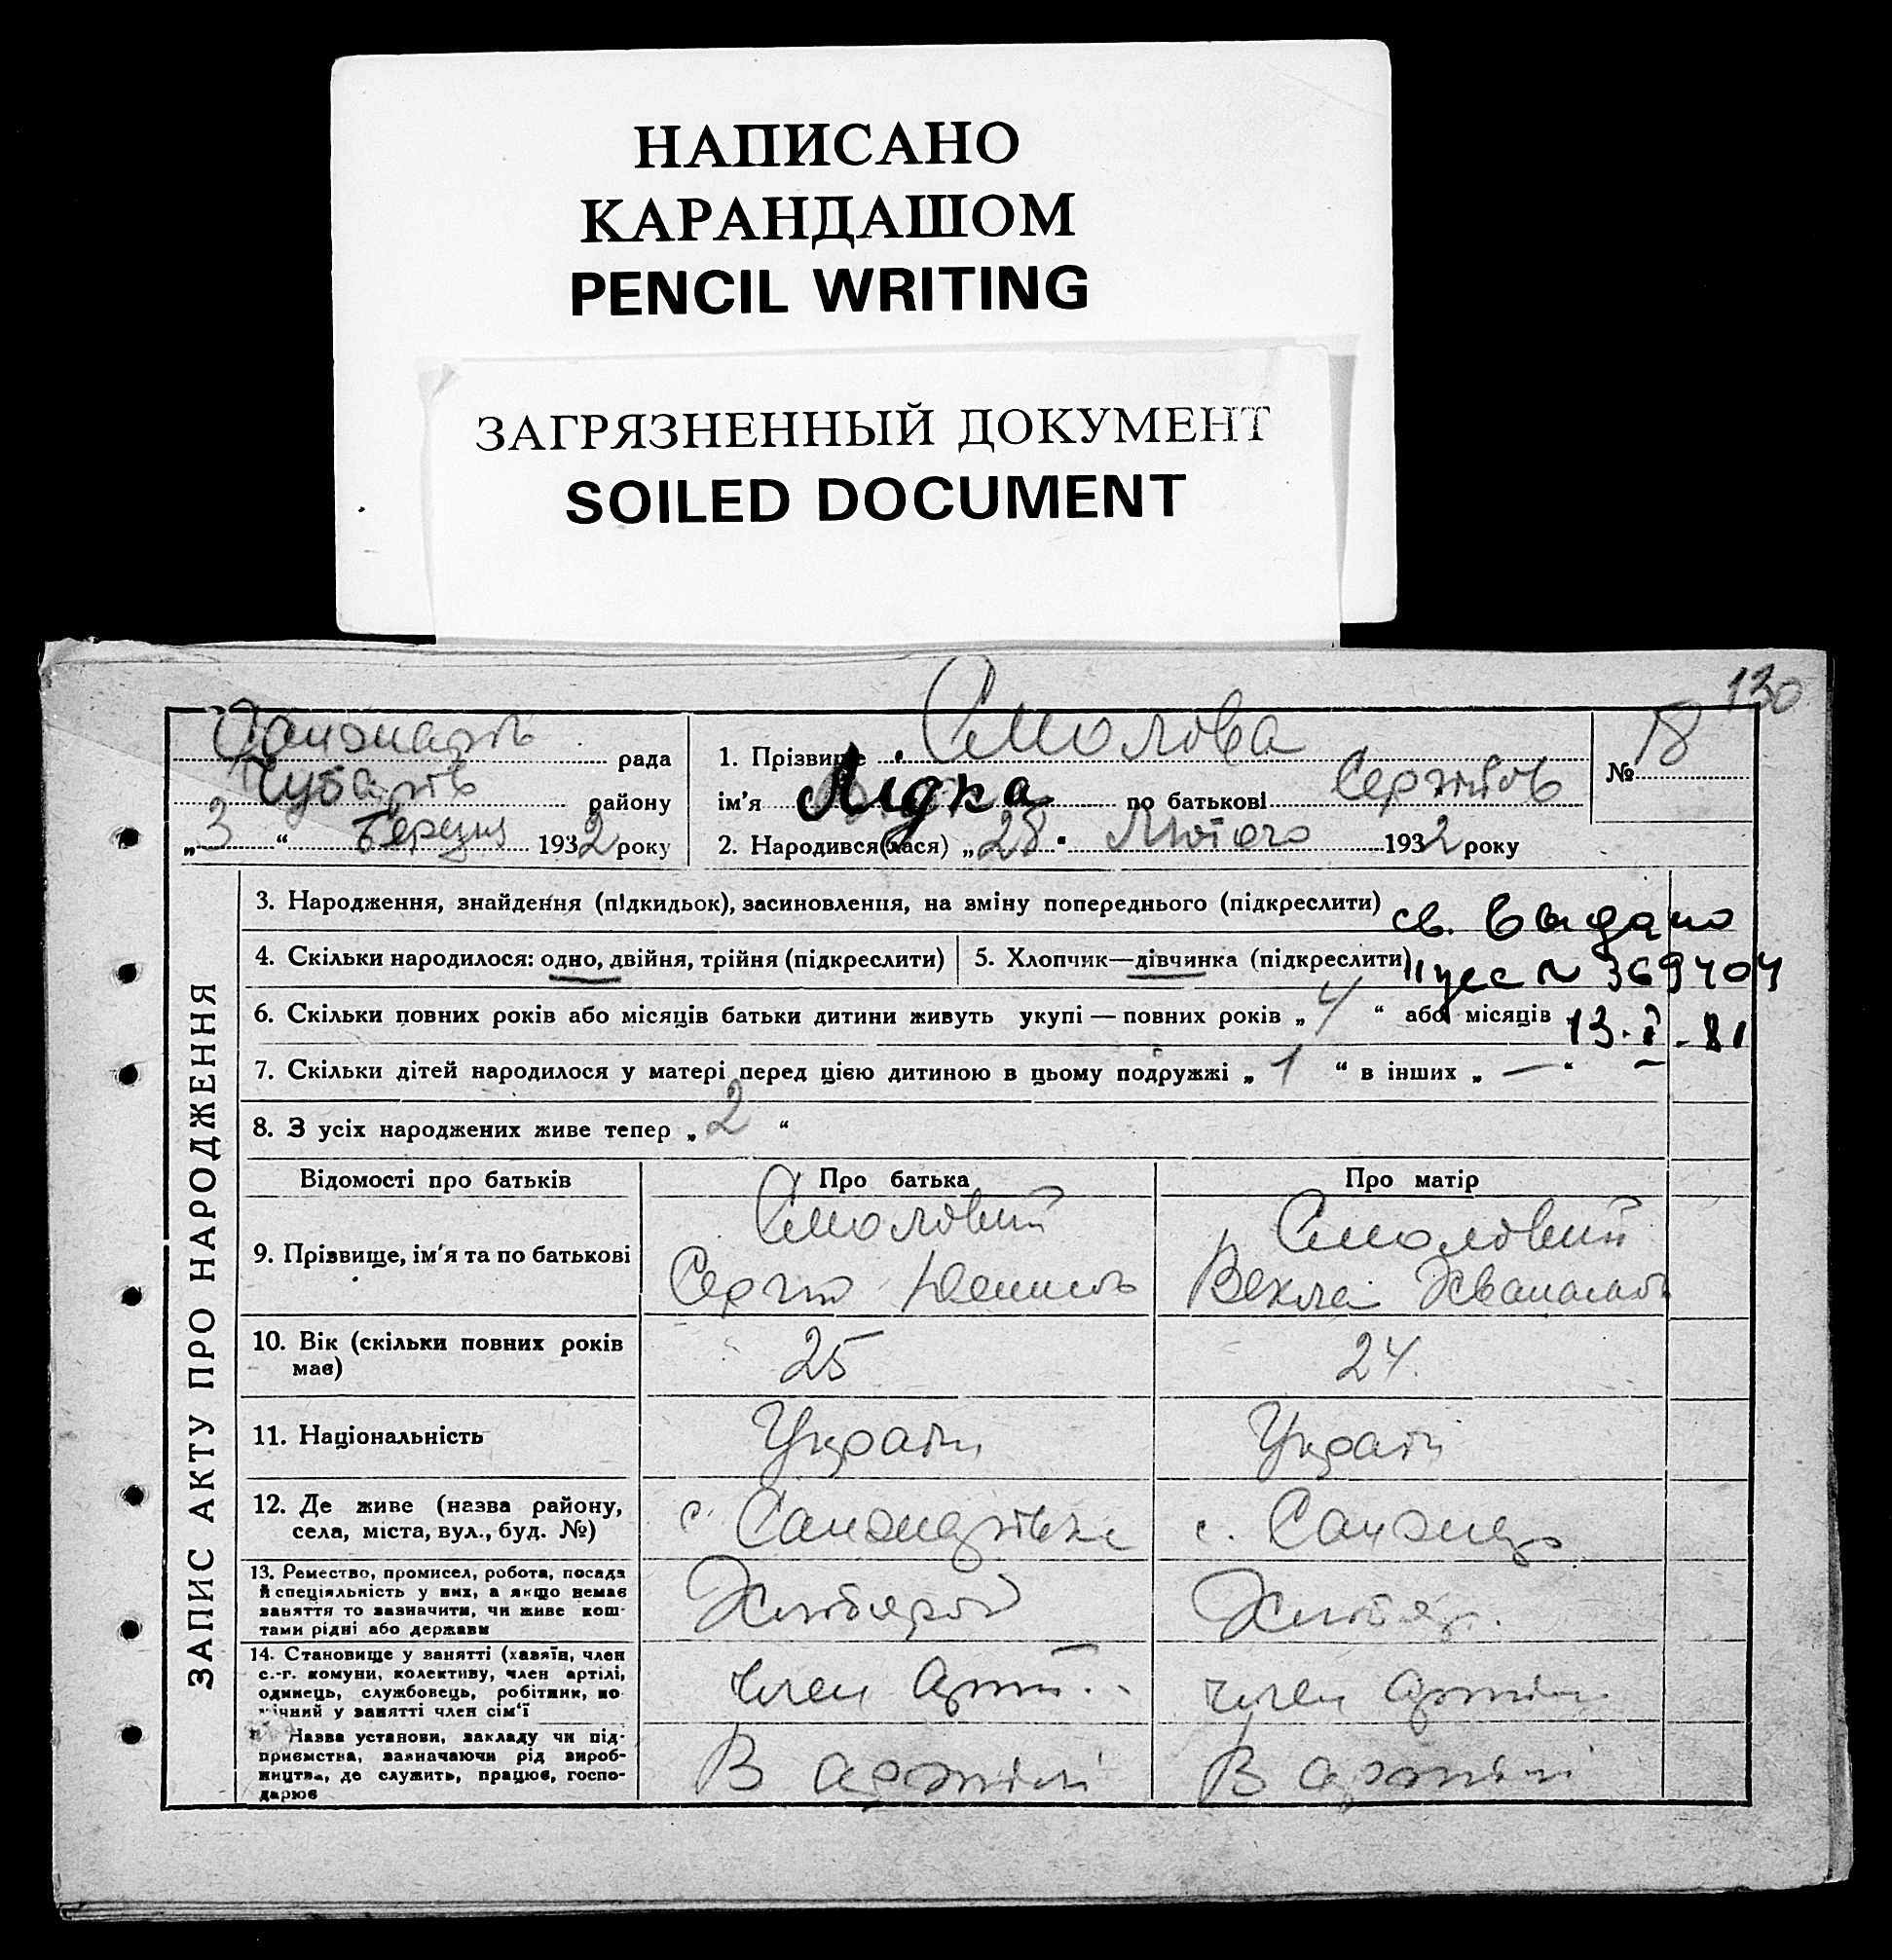 НАПИСАНО
КАРАНДАШОМ
PENCIL WRITING
ЗАГРЯЗНЕННЫЙ ДОКУМЕНТ
SOILED DOCUMENT
130
рада
району
„3“ Березня 1932 року
1. Прізвище Смолова
ім'я Лідка по батькові Сергіїов
2. Народився(лася) „28“ Лютого 1932 року
№ 18
ЗАПИС АКТУ ПРО НАРОДЖЕННЯ
3. Народження, знайдення (підкидьок), засиновлення, на зміну попереднього (підкреслити)
св. выдано
4. Скільки народилося: одно, двійня, трійня (підкреслити)
5. Хлопчик—дівчинка (підкреслити)
№ 369404
6. Скільки повних років або місяців батьки дитини живуть укупі — повних років „4“ або місяців
13.I-81
7. Скільки дітей народилося у матері перед цією дитиною в цьому подружжі „1“ в інших „—“
8. З усіх народжених живе тепер „2“
Відомості про батьків
Про батька
Про матір
9. Прізвище, ім'я та по батькові
Смоловий
Сергій
Смоловий
Векла
10. Вік (скільки повних років
має)
25
24
11. Національність
Украін
Украі
12. Де живе (назва району,
села, міста, вул., буд. №)
с.
с.
13. Ремество, промисел, робота, посада
й спеціяльність у них, а якщо немає
заняття то зазначити, чи живе кош-
тами рідні або держави
Хлібороб
14. Становище у занятті (хазяїн, член
с.-г. комуни, колективу, член артілі,
одинець, службовець, робітник, по-
мічний у занятті член сім'ї
член арт.
член артіл
Назва установи, закладу чи під-
приємства, зазначаючи рід вироб-
ництва, де служить, працює, госпо-
дарює
В артілі
В артілі